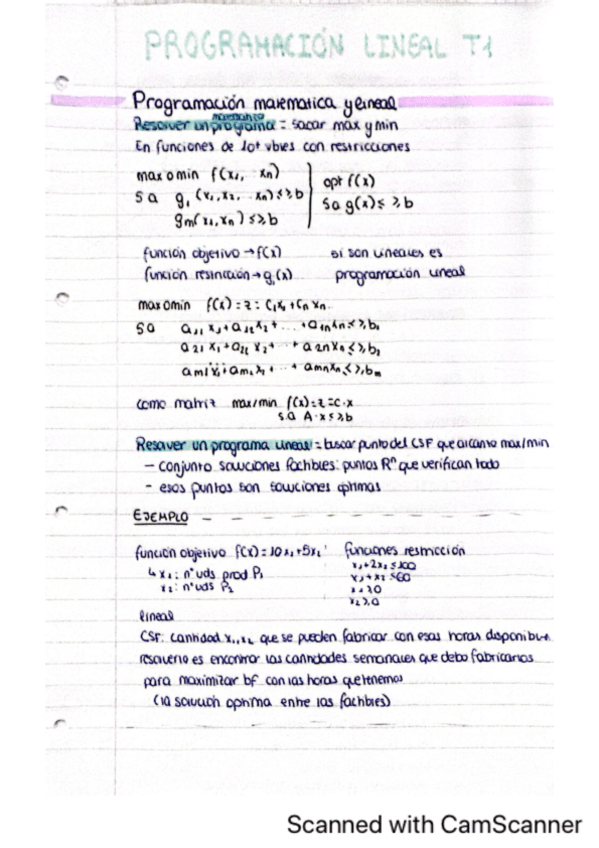 PROGRAMACIÓN LINEAL T1
Programación matematica y lineal
matematico
Resolver un programa = sacar max y min
En funciones de 1o+ vbles con restricciones
max o min f(x₁, xₙ)
S a g₁ (x₁,x₂, xₙ) ≤ ≥ b
gm(x₁,xₙ) ≤ ≥ b
opt f(x)
Sa g(x) ≤ ≥ b
función objetivo → f(x)
función restricción → g₁(x)
si son lineales es
programación lineal
max o min f(x) = z = C₁x₁ + Cₙ xₙ
Sa a₁₁ x₁ + a₁₂ x₂ + ... + a₁ₙ xₙ ≤ ≥ b₁
a₂₁ x₁ + a₂₂ x₂ + + a₂ₙ xₙ ≤ ≥ b₂
am₁ x₁ + am₂ x₂ + + amₙ xₙ ≤ ≥ bm
como matriz max/min f(x) = z = c·x
s.a A·x ≤ ≥ b
Resolver un programa lineal = buscar punto del CSF que alcance max/min
— conjunto soluciones factibles: puntos Rⁿ que verifican todo
- esos puntos son soluciones optimas
EJEMPLO
función objetivo f(x) = 10x₁ + 5x₂
↳ x₁: nº uds prod P₁
x₂: nº uds P₂
funciones restricción
x₁ + 2x₂ ≤ 100
x₁ + x₂ ≤ 60
x₁ ≥ 0
x₂ ≥ 0
lineal
CSF: cantidad x₁, x₂ que se pueden fabricar con esas horas disponibles
resolverlo es encontrar las cantidades semanales que debo fabricarlas
para maximizar bf con las horas que tenemos
(la solución optima entre las factibles)
Scanned with CamScanner